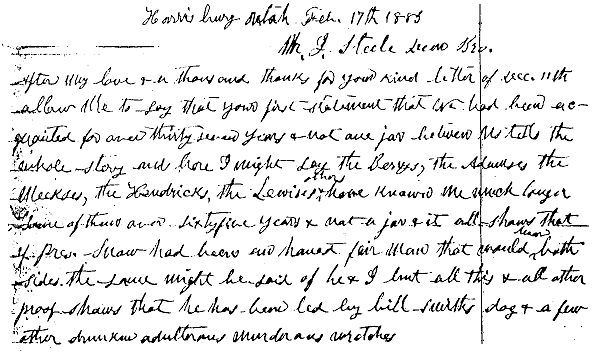 Harrisburg Utah Feb. 17th 1885
Mr. J. Steele Dear Bro.
After my love & a thousand thanks for your kind letter of Dec. 11th
allow me to say that your first statement that we had been ac-
quaited for over thirty seven years & not one jar between us tells the
whole story and here I might say the Berrys, the Adamses the
Meekses, the Hendricks, the Lewises & others have knowed me much longer
some of them over sixtyfive years & not a jar & it all shows that
if Pres. Snow had been an honest fair man that would hear both
sides. the same might be said of he & I but all this & all other
proof shows that he has been led by bill smiths dog & a few
other drunken adulterous murderous wretches